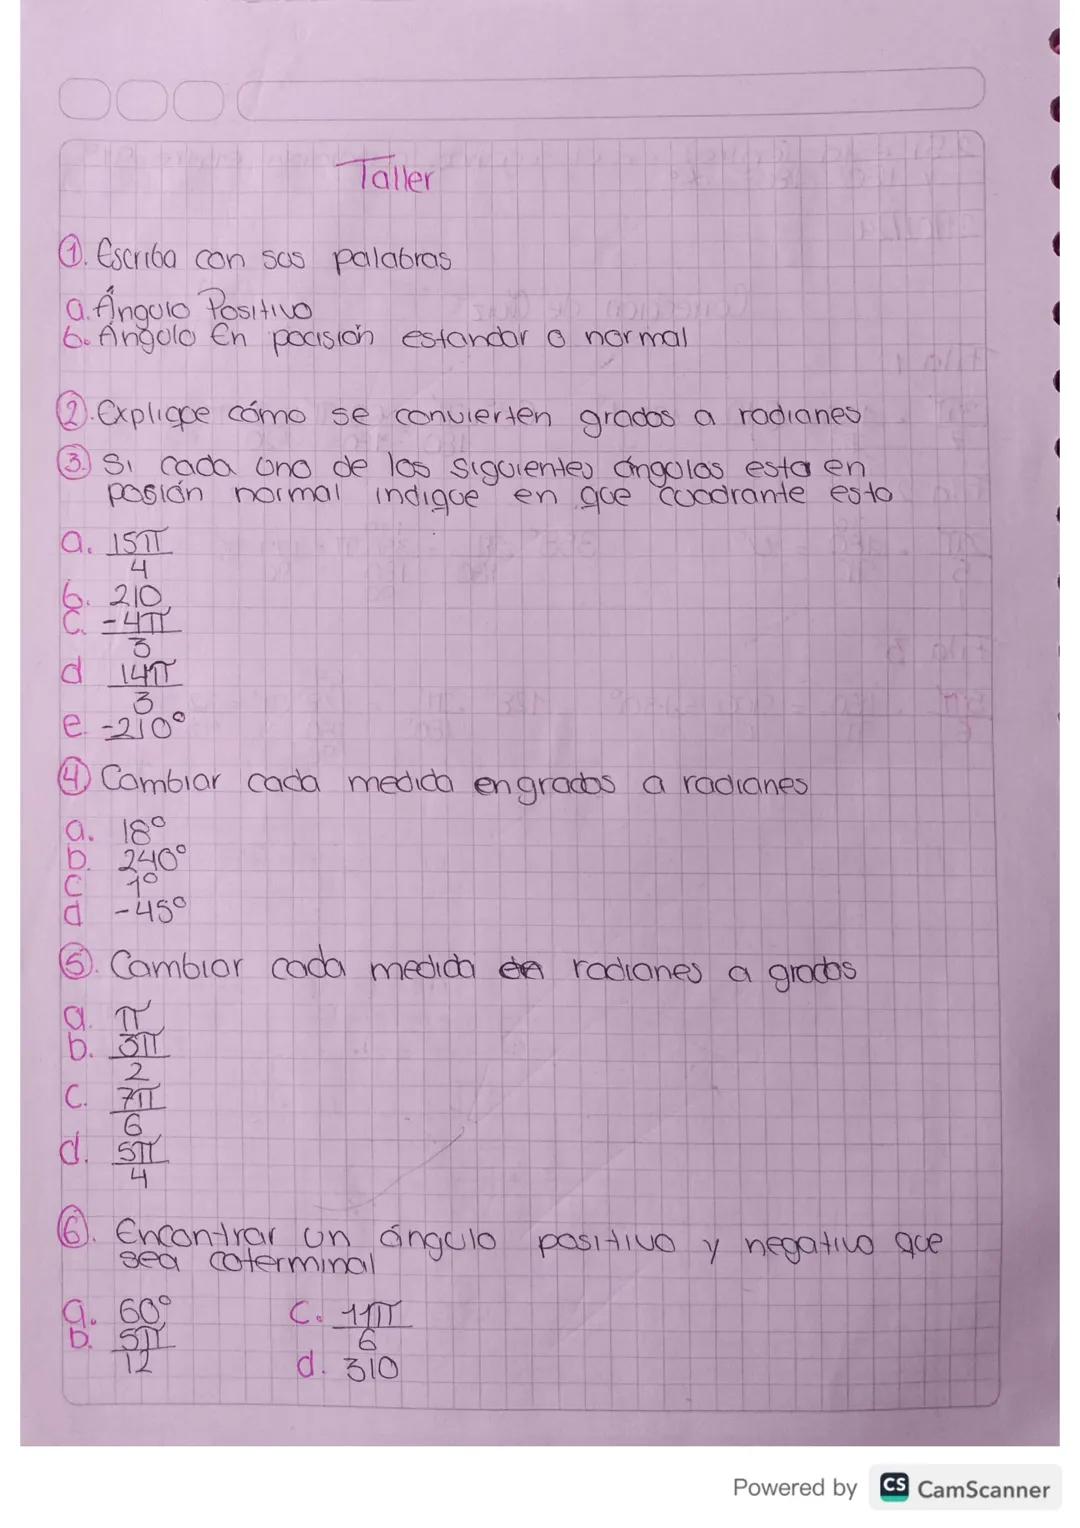 Taller
1. Escriba con sus palabras
a. Ángulo Positivo
b. Angulo En pocisión estandar o normal
2. Explique cómo se convierten grados a radianes
3. Si cada uno de los siguientes ángulos esta en
posión normal indique en que cuadrante esta
a. 15π
4
b. 210
c. -4π
3
d 14π
3
e. -210°
4 Cambiar cada medida en grados a radianes
a. 18°
b. 240°
c 1°
d -45°
5. Cambiar cada medida en radianes a grados
a. π
b. 3π
2
c. 7π
6
d. 5π
4
6. Encontrar un ángulo positivo y negativo que
sea coterminal
a. 60° c. 11π
6
b. 5π
12 d. 310
Powered by CS CamScanner